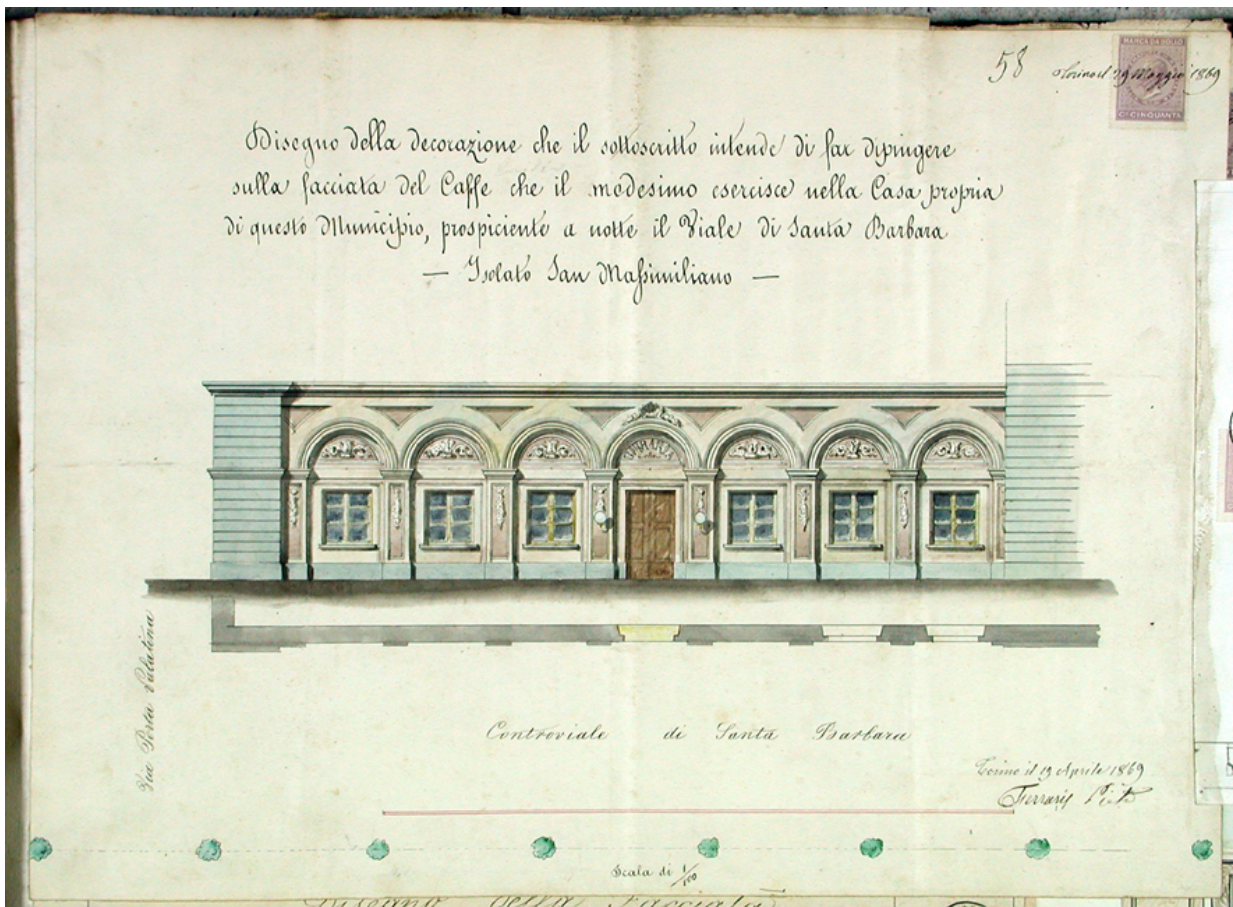 58
Torino il 29 Maggio 1869
MARCA DA BOLLO
Ct CINQUANTA
Disegno della decorazione che il sottoscritto intende di far dipingere
sulla facciata del Caffe che il modesimo esercisce nella Casa propria
di questo Municipio, prospiciente a notte il Viale di Santa Barbara
— Isolato San Massimiliano —
BIRRARIA
Via Porta Palatina
Controviale di Santa Barbara
Torino il 19 Aprile 1869
Ferraris
Scala di 1/100
Disegno della Facciata